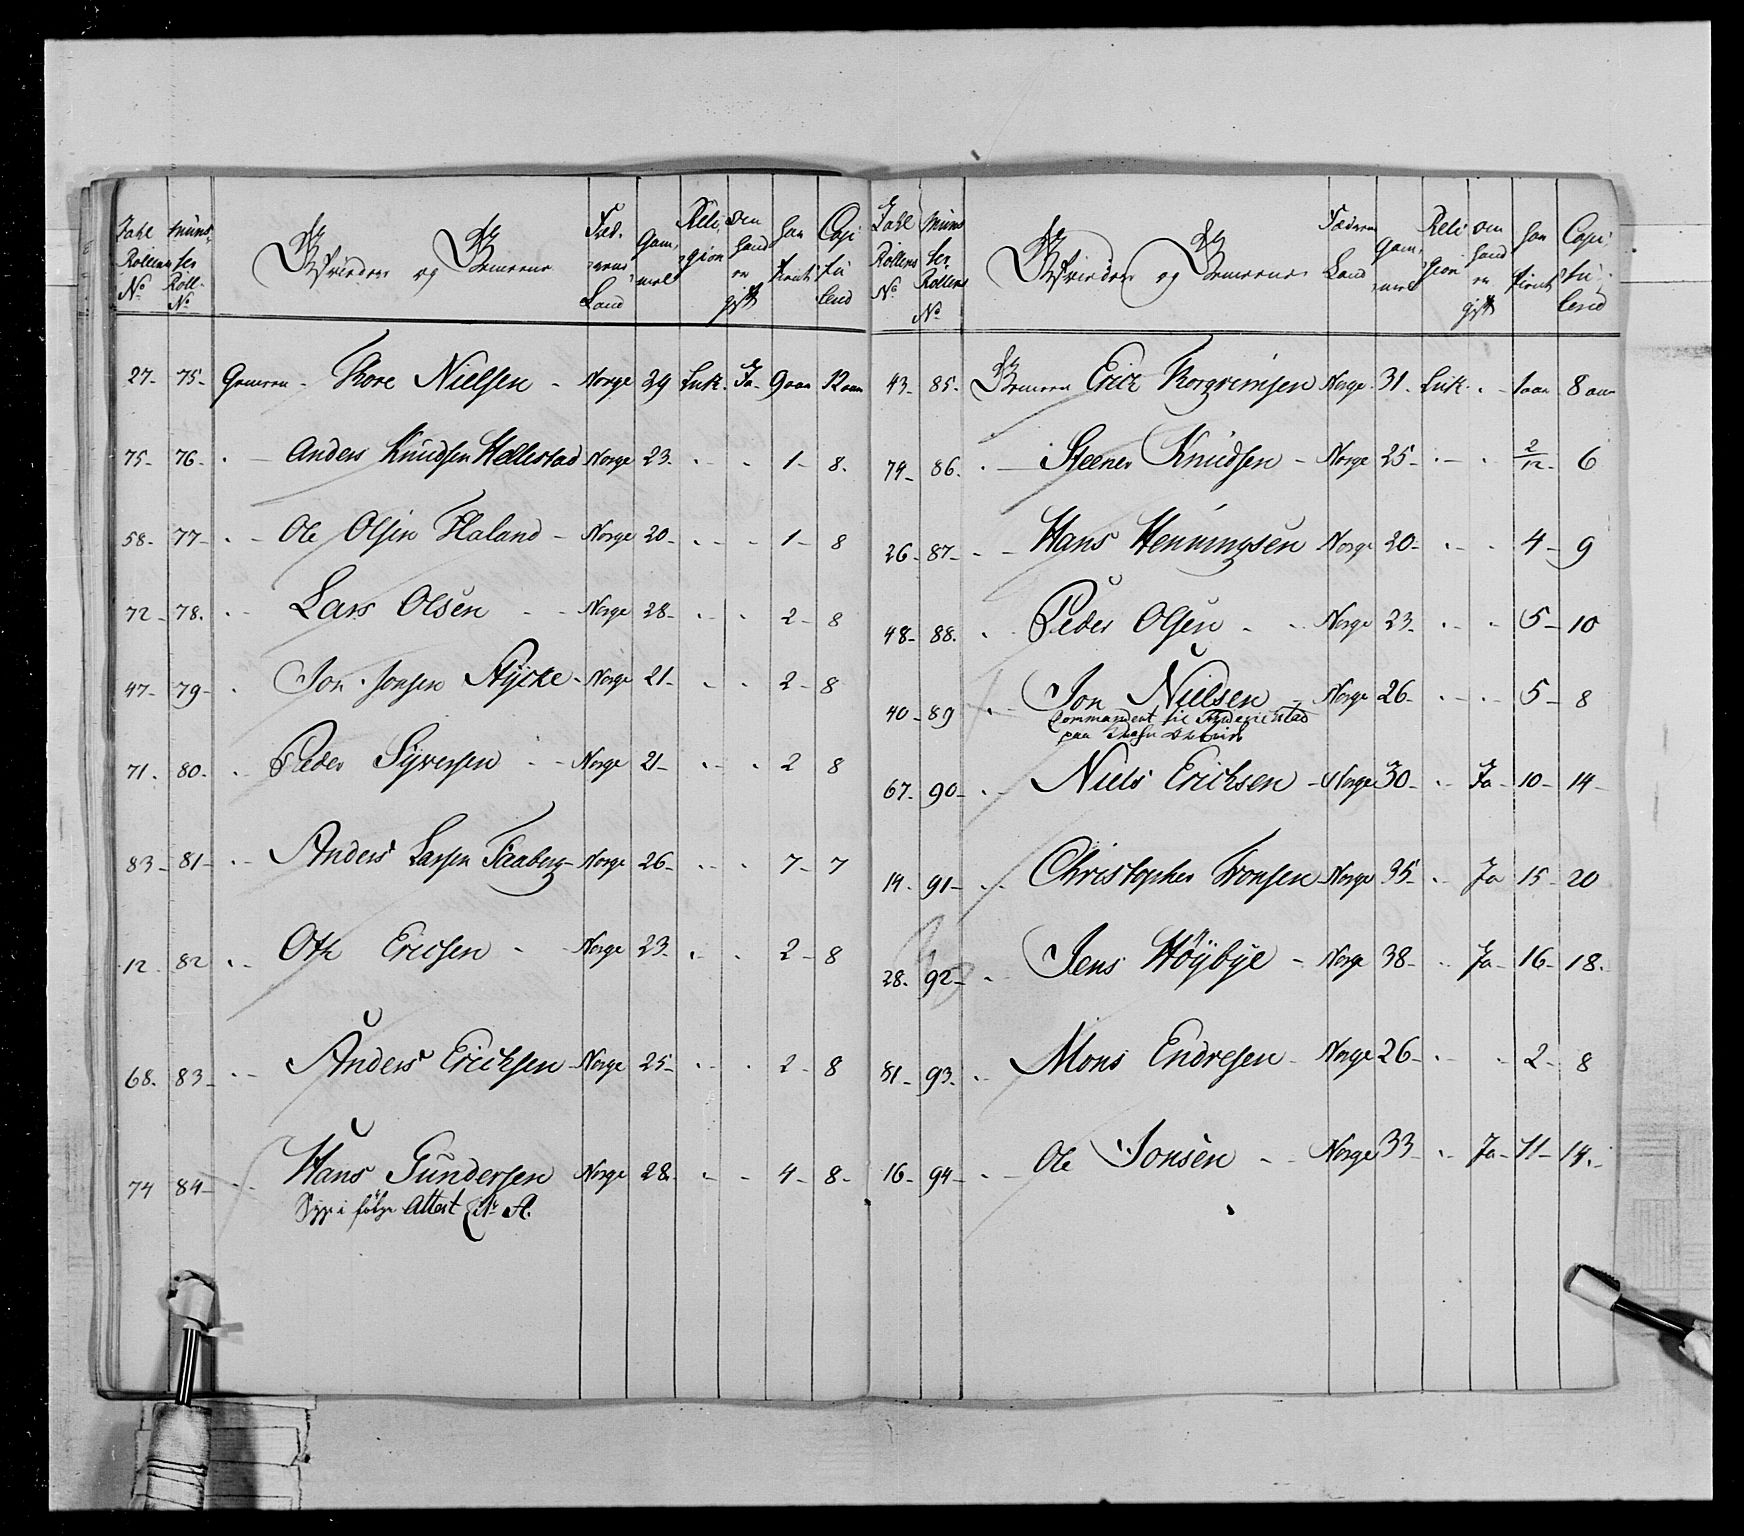 Tahl Rollens No | Münster Roll. No | Gefreidere og Gemeene | Fædrene Land | Gammel | Religion | Om hand er gift | har tient | Capitulend
27- 75- Gemeen - Thore Nielsen - Norge 29 Luth. Ja- 9 aar 12 aar
75- 76- Anders Knudsen Hellestad Norge 23- 1- 8.
58- 77- Ole Olsen Haland - Norge 20- 1- 8
72- 78. Lars Olsen - Norge 28- 2- 8
47- 79- Jon Jonsen Stycke - Norge 21- 2- 8
71. 80. Peder Syversen - Norge 21- 2 8
83- 81- Anders Larsen Faaberg - Norge 26- 7- 7
12. 82 Ole Ericsen - Norge 23- 2- 8
68. 83- Anders Erichsen - Norge 25- 2- 8
74 84- Hans Gundersen Norge 28. 4- 8.
Syg i følge Attest No A.
Tahl Rollens No | Münster Rollens No | Gefreidere og Gemeene | Fædrene Land | Gammel | Religion | om hand er gift | har tient | Capitulend
43- 85. Gemeen Erick Thorgrimsen Norge 31. Luth. 1 aar 8 aar
74- 86. Steener Knudsen - Norge 25- 2/12- 6
26- 87- Hans Henningsen Norge 20- 4- 9
48- 88. Peder Olsen Norge 23- 5- 10
40- 89 Jon Nielsen - Norge 26- 5- 8
Commandert til Friderichstad
paa
67- 90- Niels Erichsen - Norge 30- Ja- 10- 14-
14. 91- Christopher Tronsen Norge 35- Ja 15- 20
28. 92- Jens Høybye - Norge 38- Ja- 16- 18.
81- 93- Mons Endresen - Norge 26- 2- 8
16- 94- Ole Jonsen - Norge 33- Ja- 11- 14.-